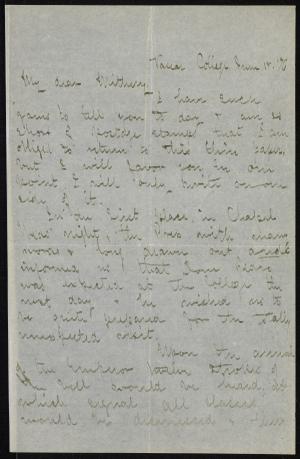 Vassar College June 15. '76
My dear Mother,
I have such
yarns to tell you to day & am so
short of postage stamps that I am
obliged to return to this thin paper,
but I will favor you in one
point I will only write on one
side of it.
In the first place, in Chapel
last night, the Pres with many
words & long drawn out
informed us that Dom Pedro
was expected at the College the
next day & he wished us to
be quite prepared for the totally
unexpected visit.
Upon the arrival
of the Emperor twelve strokes of
the bell would be heard, at
which signal all classes
would be dismissed & then